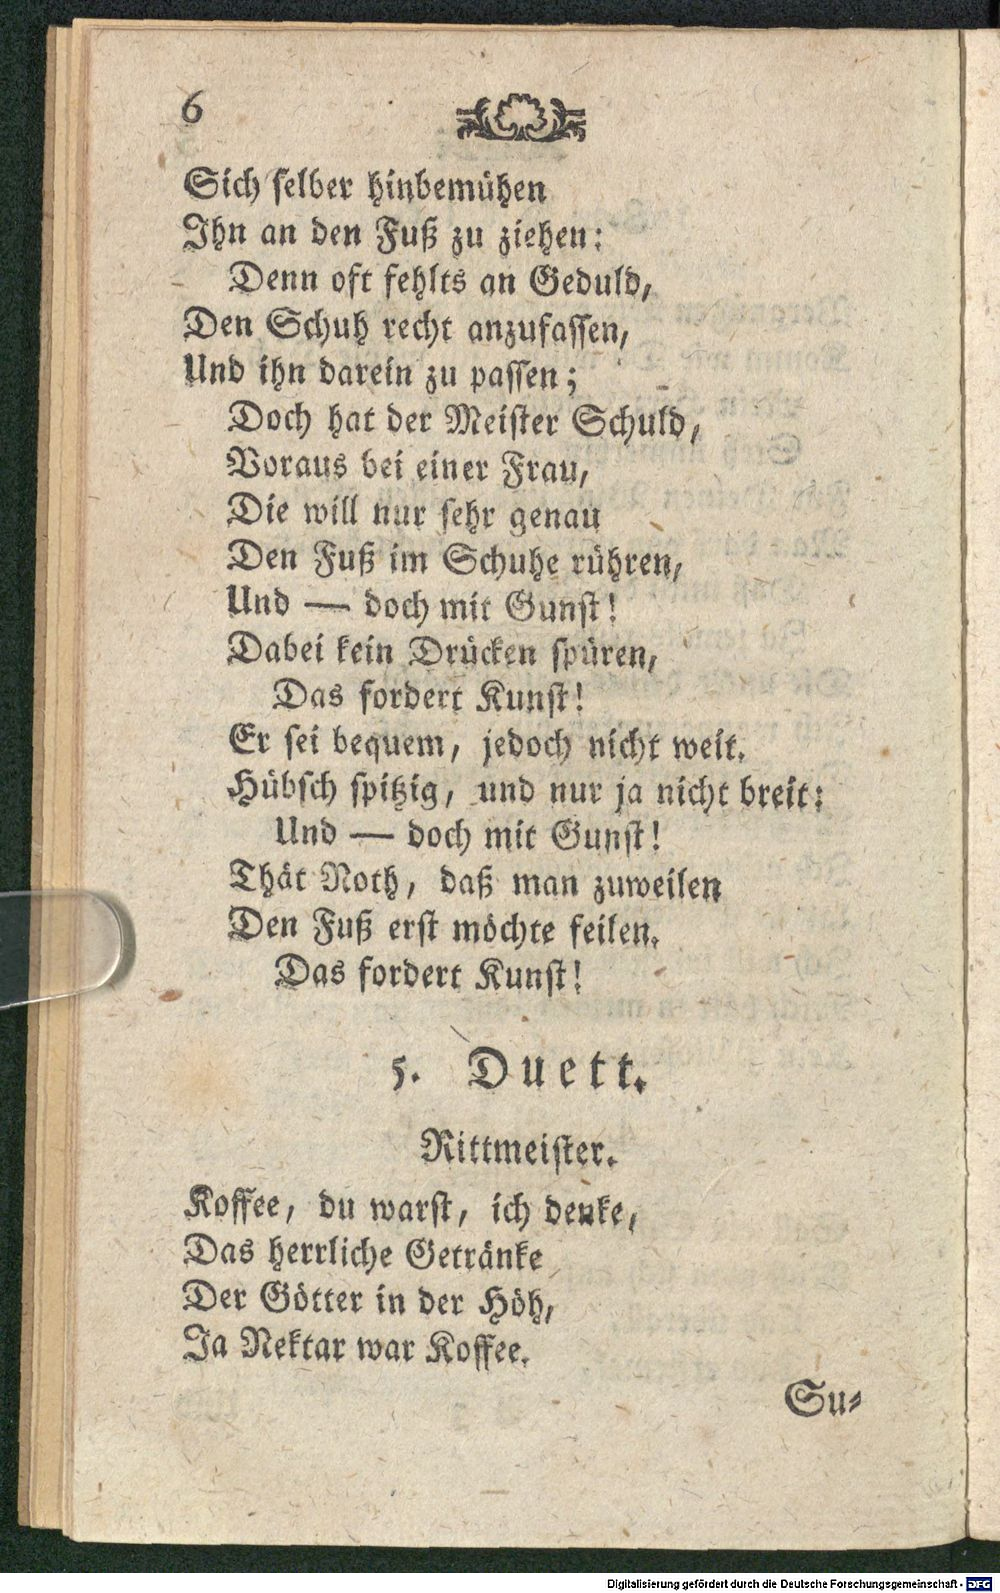 6
Sich selber hinbemühen
Ihn an den Fuß zu ziehen:
Denn oft fehlts an Geduld,
Den Schuh recht anzufassen,
Und ihn darein zu passen;
Doch hat der Meister Schuld,
Voraus bei einer Frau,
Die will nur sehr genau
Den Fuß im Schuhe rühren,
Und — doch mit Gunst!
Dabei kein Drücken spüren,
Das fordert Kunst!
Er sei bequem, jedoch nicht weit.
Hübsch spitzig, und nur ja nicht breit:
Und — doch mit Gunst!
Thät Noth, daß man zuweilen
Den Fuß erst möchte feilen.
Das fordert Kunst!
5. Duett.
Rittmeister.
Koffee, du warst, ich denke,
Das herrliche Getränke
Der Götter in der Höh,
Ja Nektar war Koffee.
Su-
Digitalisierung gefördert durch die Deutsche Forschungsgemeinschaft - DFG